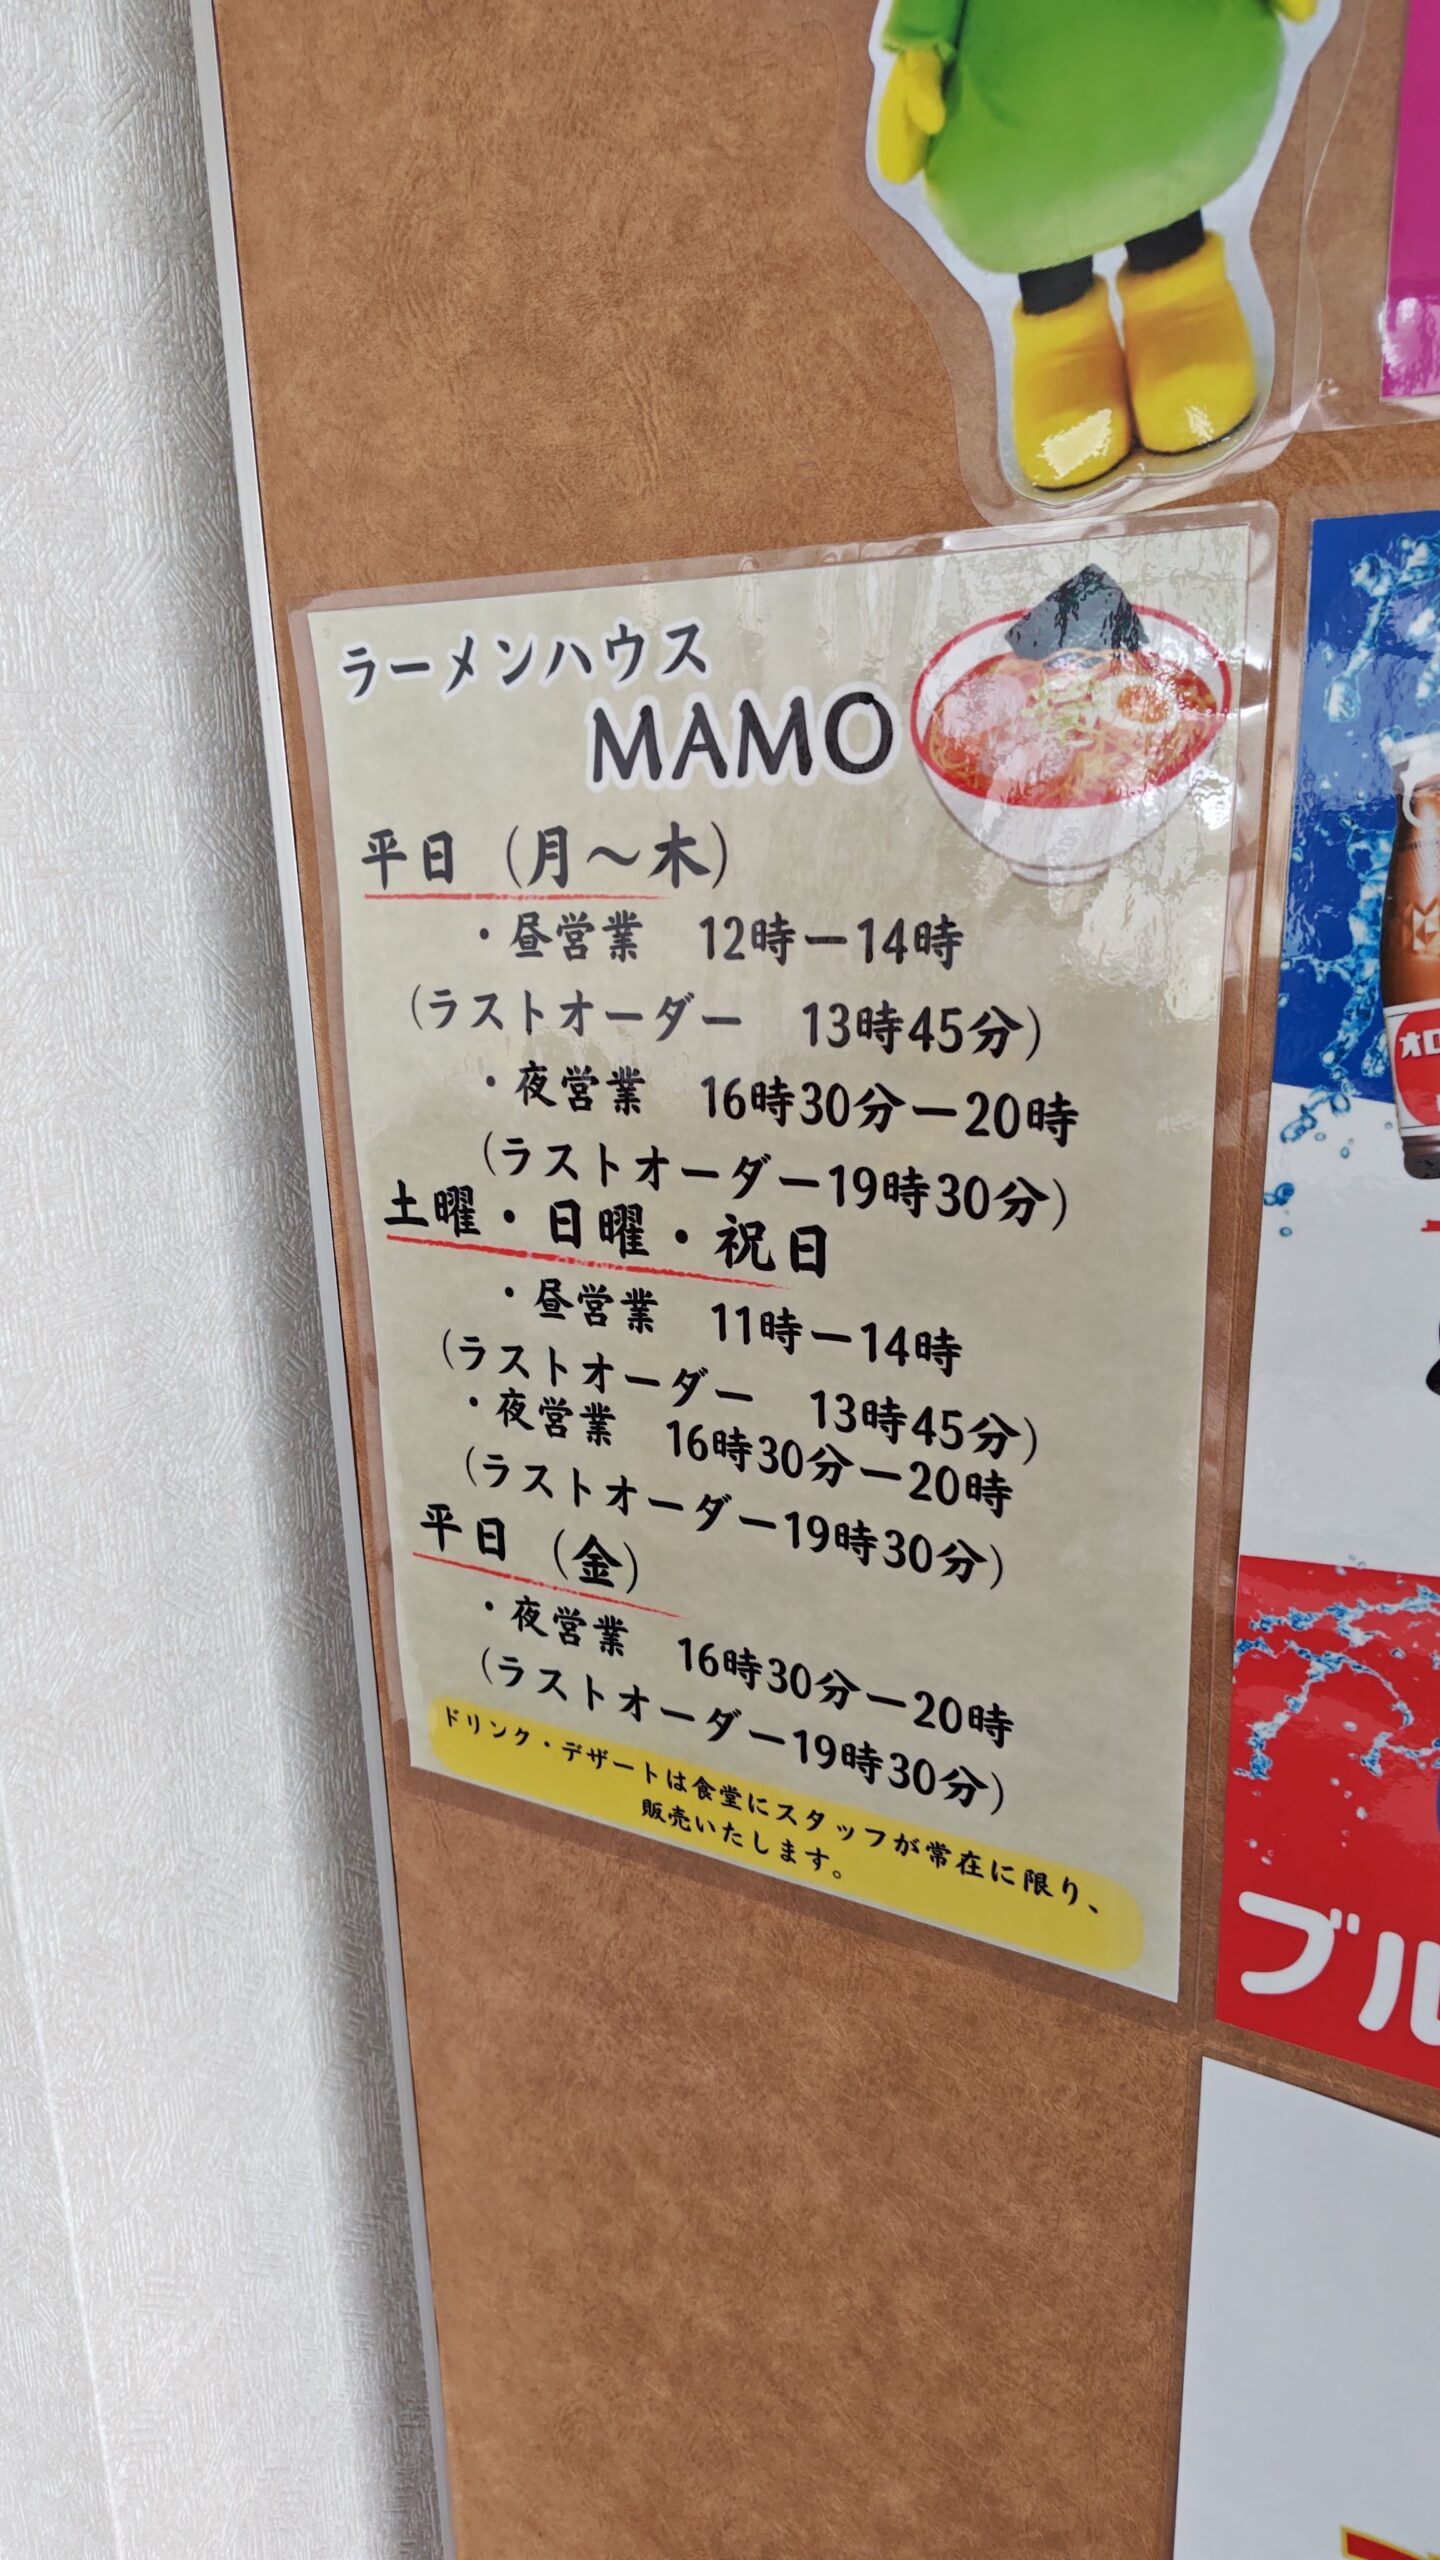 ラーメンハウス
MAMO
平日（月～木）
・昼営業　12時ー14時
（ラストオーダー　13時45分）
・夜営業　16時30分ー20時
（ラストオーダー19時30分）
土曜・日曜・祝日
・昼営業　11時ー14時
（ラストオーダー　13時45分）
・夜営業　16時30分ー20時
（ラストオーダー19時30分）
平日（金）
・夜営業　16時30分ー20時
（ラストオーダー19時30分）
ドリンク・デザートは食堂にスタッフが常在に限り、
販売いたします。
オロ
ブル